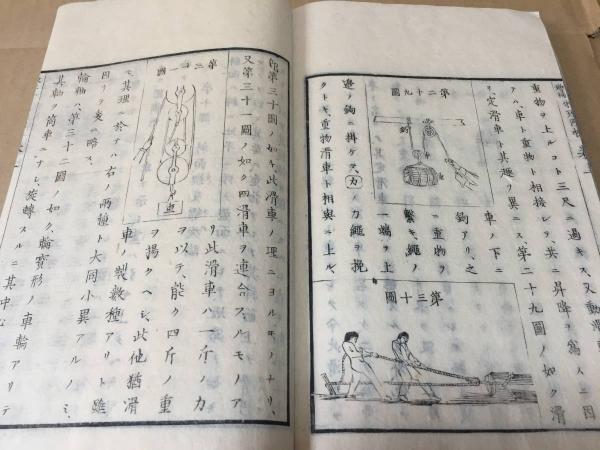 重物ヲ上ルコト三尺ニ過キス、又動滑車ニ
アハ、車ト重物ト相接シテ、共ニ昇降ヲ為ス、二因
リ、定滑車ト其趣ヲ異ニス、第二十九圖ノ如ク滑
車ノ下ニ
鈎アリ、之
ニ重物ヲ
繋キ、繩ノ
一端ヲ上
第二十九圖
鈎
邊ノ鈎ニ掛ケ、カノ力繩ヲ挽
クトキ、重物滑車ト相與ニ上ル、
第三十圖
即第三十圖ノ如キ、此滑車ノ理ニヨルモノナリ、
又第三十一圖ノ如ク四滑車ヲ連合スルモノア
リ、此滑車ハ一斤ノ力
ヲ以テ、能ク四斤ノ重
ヲ揚クヘシ、此他猶滑
車ノ製數種アリト雖
第三十一圖
重
モ、其理ニ於テハ右ノ兩種ト大同小異アルノミ、
因リテ支ニ略ス、
輪軸ハ、第三十二圖ノ如ク、輪寶形ノ車輪アリテ
其軸ヲ筒車ニナシ、旋轉スルニ其中心